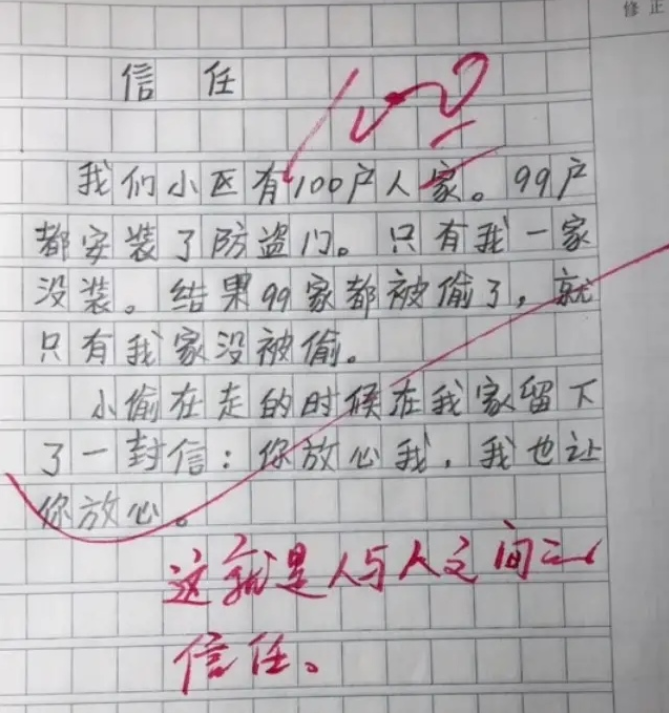 修正
信任
100
我们小区有100户人家。99户
都安装了防盗门。只有我一家
没装。结果99家都被偷了，就
只有我家没被偷。
小偷在走的时候在我家留下
了一封信：你放心我，我也让
你放心。
这就是人与人之间的
信任。